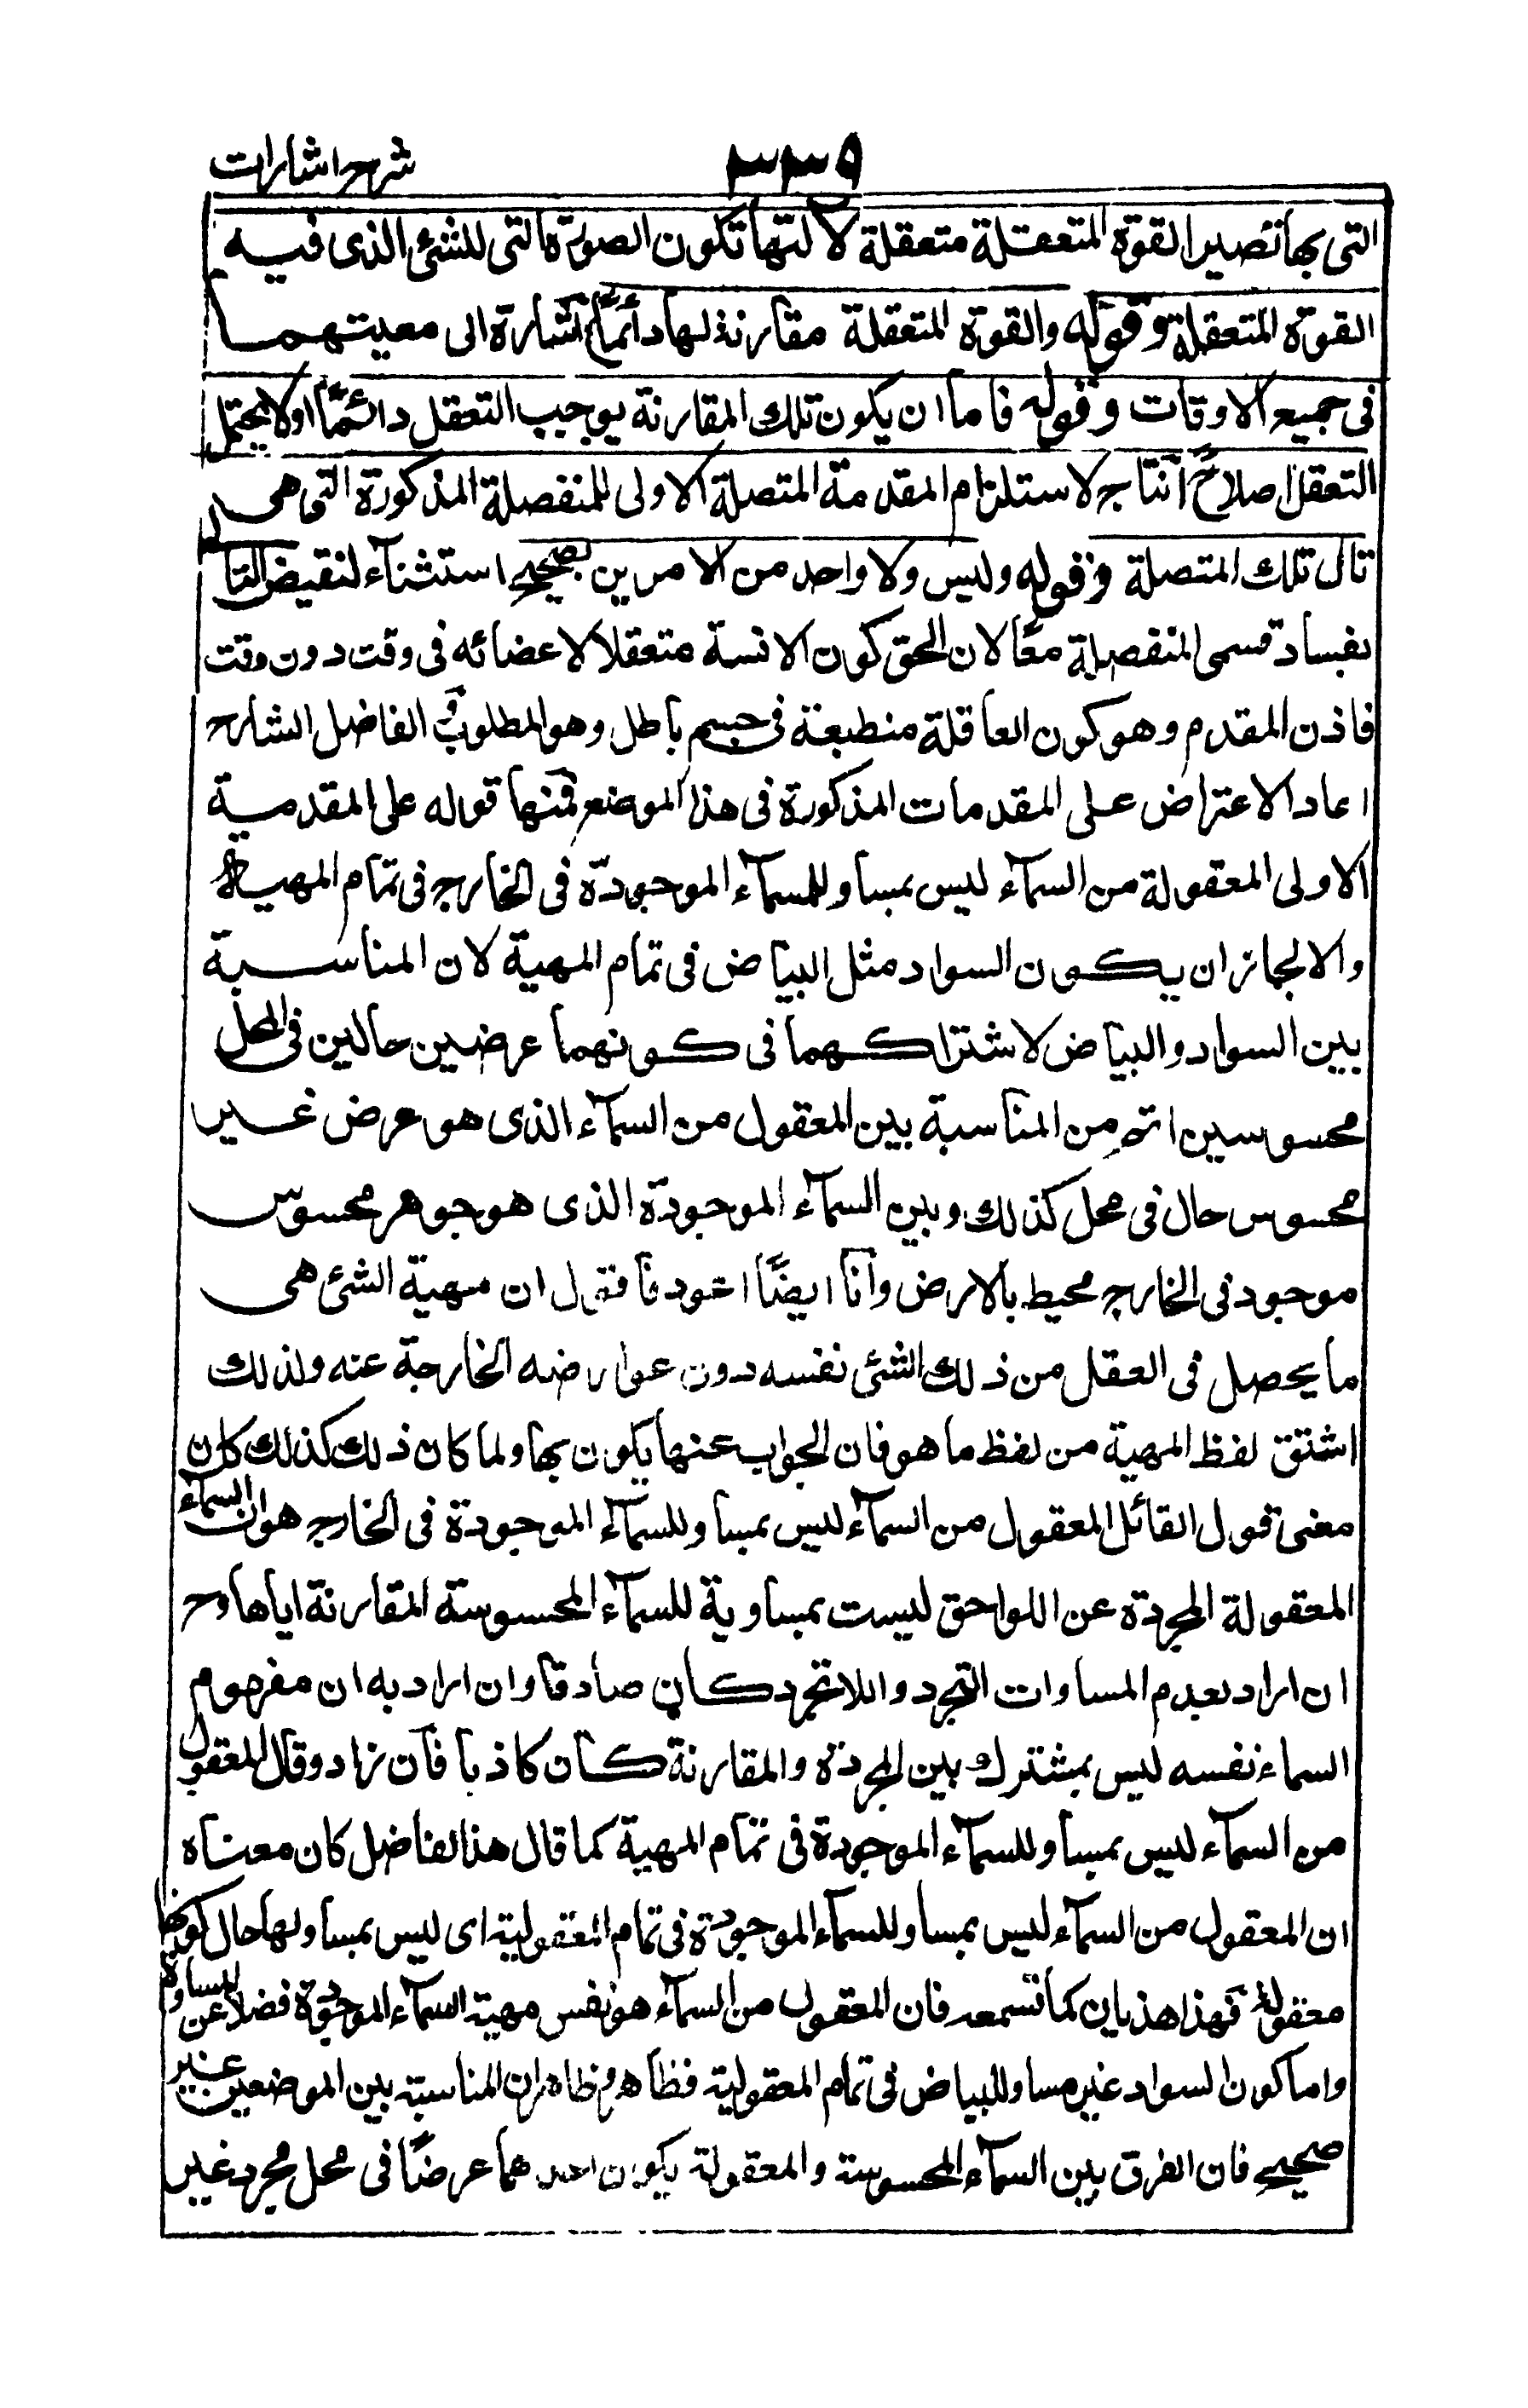 شرح اشارات
٣٣٩
التى بها تصير القوة المتعقلة متعقلة لآلتها تكون الصورة التى للشئ الذى فيه
القوة المتعقلة وقوله والقوة المتعقلة مقارنة لها دائما اشارة الى معيتهما
فى جميع الاوقات وقوله فاما ان يكون تلك المقارنة يوجب التعقل دائمًا اولا يحتمل
التعقل اصلاً انتاج لاستلزام المقدمة المتصلة الاولى للمنفصلة المذكورة التى هى
تالى تلك المتصلة وقوله وليس ولا واحد من الامرين بصحيح استثناء لنقيض التالى
بفساد قسمى المنفصلة معًا لان الحق كون الانسة متعقلا لاعضائه فى وقت دون وقت
فاذن المقدم وهو كون العاقلة منطبعة فى جسم باطل وهو المطلوب الفاضل الشارح
اعاد الاعتراض على المقدمات المذكورة فى هذا الموضع فمنها قوله على المقدمية
الاولى المعقولة من السمآء ليس بمساو للسمآء الموجودة فى الخارج فى تمام المهية
والا لجاز ان يكون السواد مثل البياض فى تمام المهية لان المناسبة
بين السواد والبياض لاشتراكهما فى كونهما عرضين حالين فى المحل
محسوسين اتم من المناسبة بين المعقول من السمآء الذى هو عرض غير
محسوس حال فى محل كذلك وبين السمآء الموجودة الذى هو جوهر محسوس
موجود فى الخارج محيط بالارض وانا ايضًا اعود فاقول ان مهية الشئ هى
ما يحصل فى العقل من ذلك الشئ نفسه دون عوارضه الخارجة عنه ولذلك
اشتق لفظ المهية من لفظ ما هو فان الجواب عنها يكون بها ولما كان ذلك كذلك كان
معنى قول القائل المعقول من السمآء ليس بمساو للسمآء الموجودة فى الخارج هو ان السمآء
المعقولة المجردة عن اللواحق ليست بمساوية للسمآء المحسوسة المقارنة اياها وح
ان اراد بعدم المساوات التجرد واللاتجرد كان صادقا وان اراد به ان مفهوم
السماء نفسه ليس بمشترك بين المجردة والمقارنة كان كاذبا فان زاد وقال المعقول
من السمآء ليس بمساو للسمآء الموجودة فى تمام المهية كما قال هذا الفاضل كان معناه
ان المعقول من السمآء ليس بمساو للسمآء الموجودة فى تمام المعقولية اى ليس بمساو لها حال كونها
معقولة فهذا هذيان كما تسمعه فان المعقول من السمآء هو نفس مهية السمآء الموجودة فضلا عن المساوة
واما كون السواد غير مساو للبياض فى تمام المعقولية فظاهر وظاهر ان المناسبة بين الموضعين غير
صحيح فان الفرق بين السمآء المحسوسة والمعقولة يكون احدهما عرضًا فى محل مجرد غير